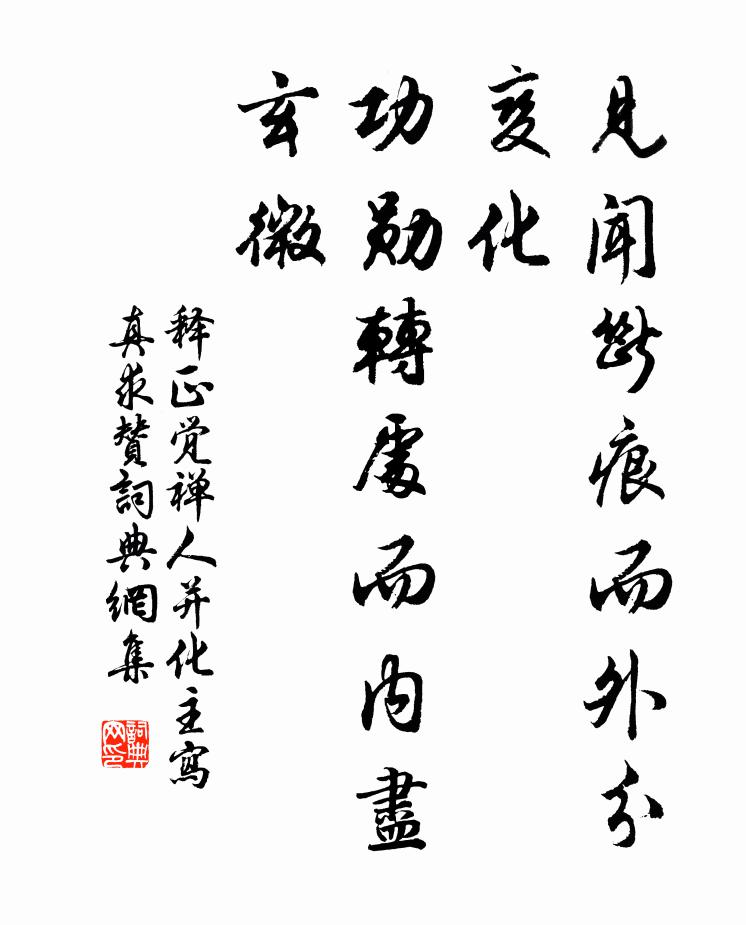 見聞斷痕而外分
变化
功勋轉處而内盡
玄微
释正觉禅人并化主寫
真求賛詞典網集
詞典网印